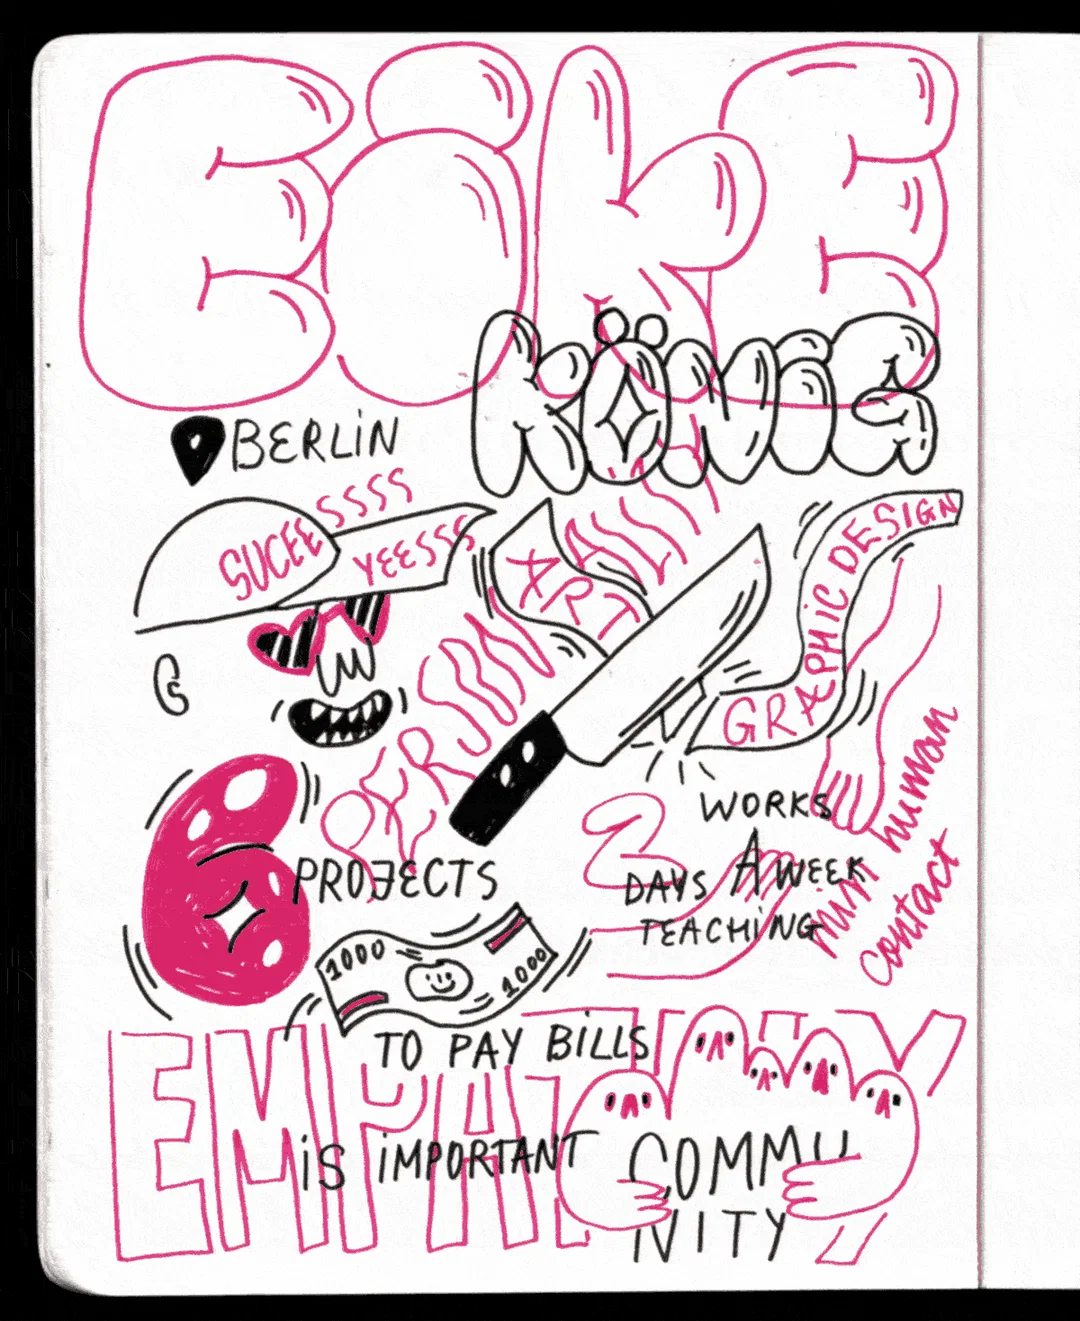 EiKE
KÖNiG
BERLiN
SUCEE
SSSS
YEESSS
ART
GRAPHiC DESIGN
PERSON
6 PROJECTS
1000
1000
TO PAY BiLLS
WORKS
2 DAYS A WEEK
TEACHiNG
human
contact
EMPATHY
iS iMPORTANT
COMMU
NITY